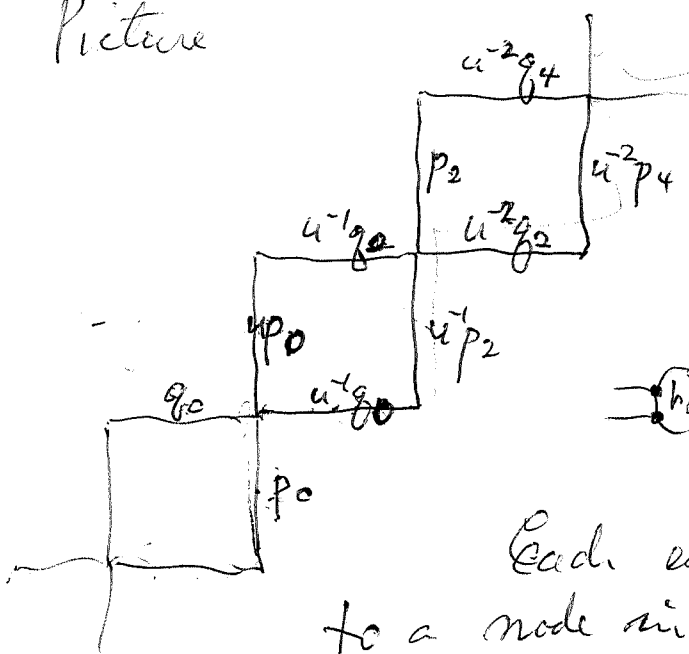 Picture
u⁻²q₄
p₂
u⁻²p₄
u⁻¹q₂
u⁻²q₂
p₀
u⁻¹p₂
q₀
u⁻¹q₀
p₀
h
Each
to a node in